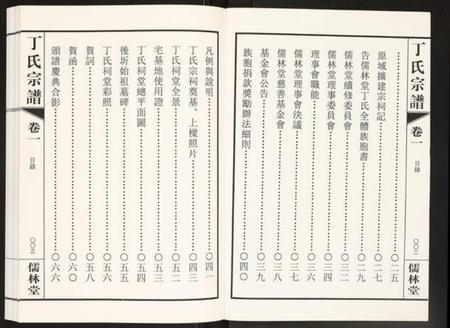 丁氏宗譜
卷一
目錄
〇〇二
儒林堂
原城擴建宗祠記……二五
告儒林堂丁氏全體族胞書……二七
儒林堂續修委員會……二九
儒林堂理事委員會……三二
理事會職能……三四
儒林堂理事會決議……三六
儒林堂慈善基金會……三八
基金會公告……三九
族胞捐款獎勵辦法細則……四〇
凡例與說明……四一
丁氏宗祠奠基、上樑照片……四三
丁氏祠堂全景……五二
宅基地使用證……五三
丁氏祠堂總平面圖……五四
後圻始祖墓碑……五五
丁氏祠堂彩照……五六
賀詞……五八
賀函……六〇
頒譜慶典合影……六六
丁氏宗譜
卷一
目錄
〇〇三
儒林堂